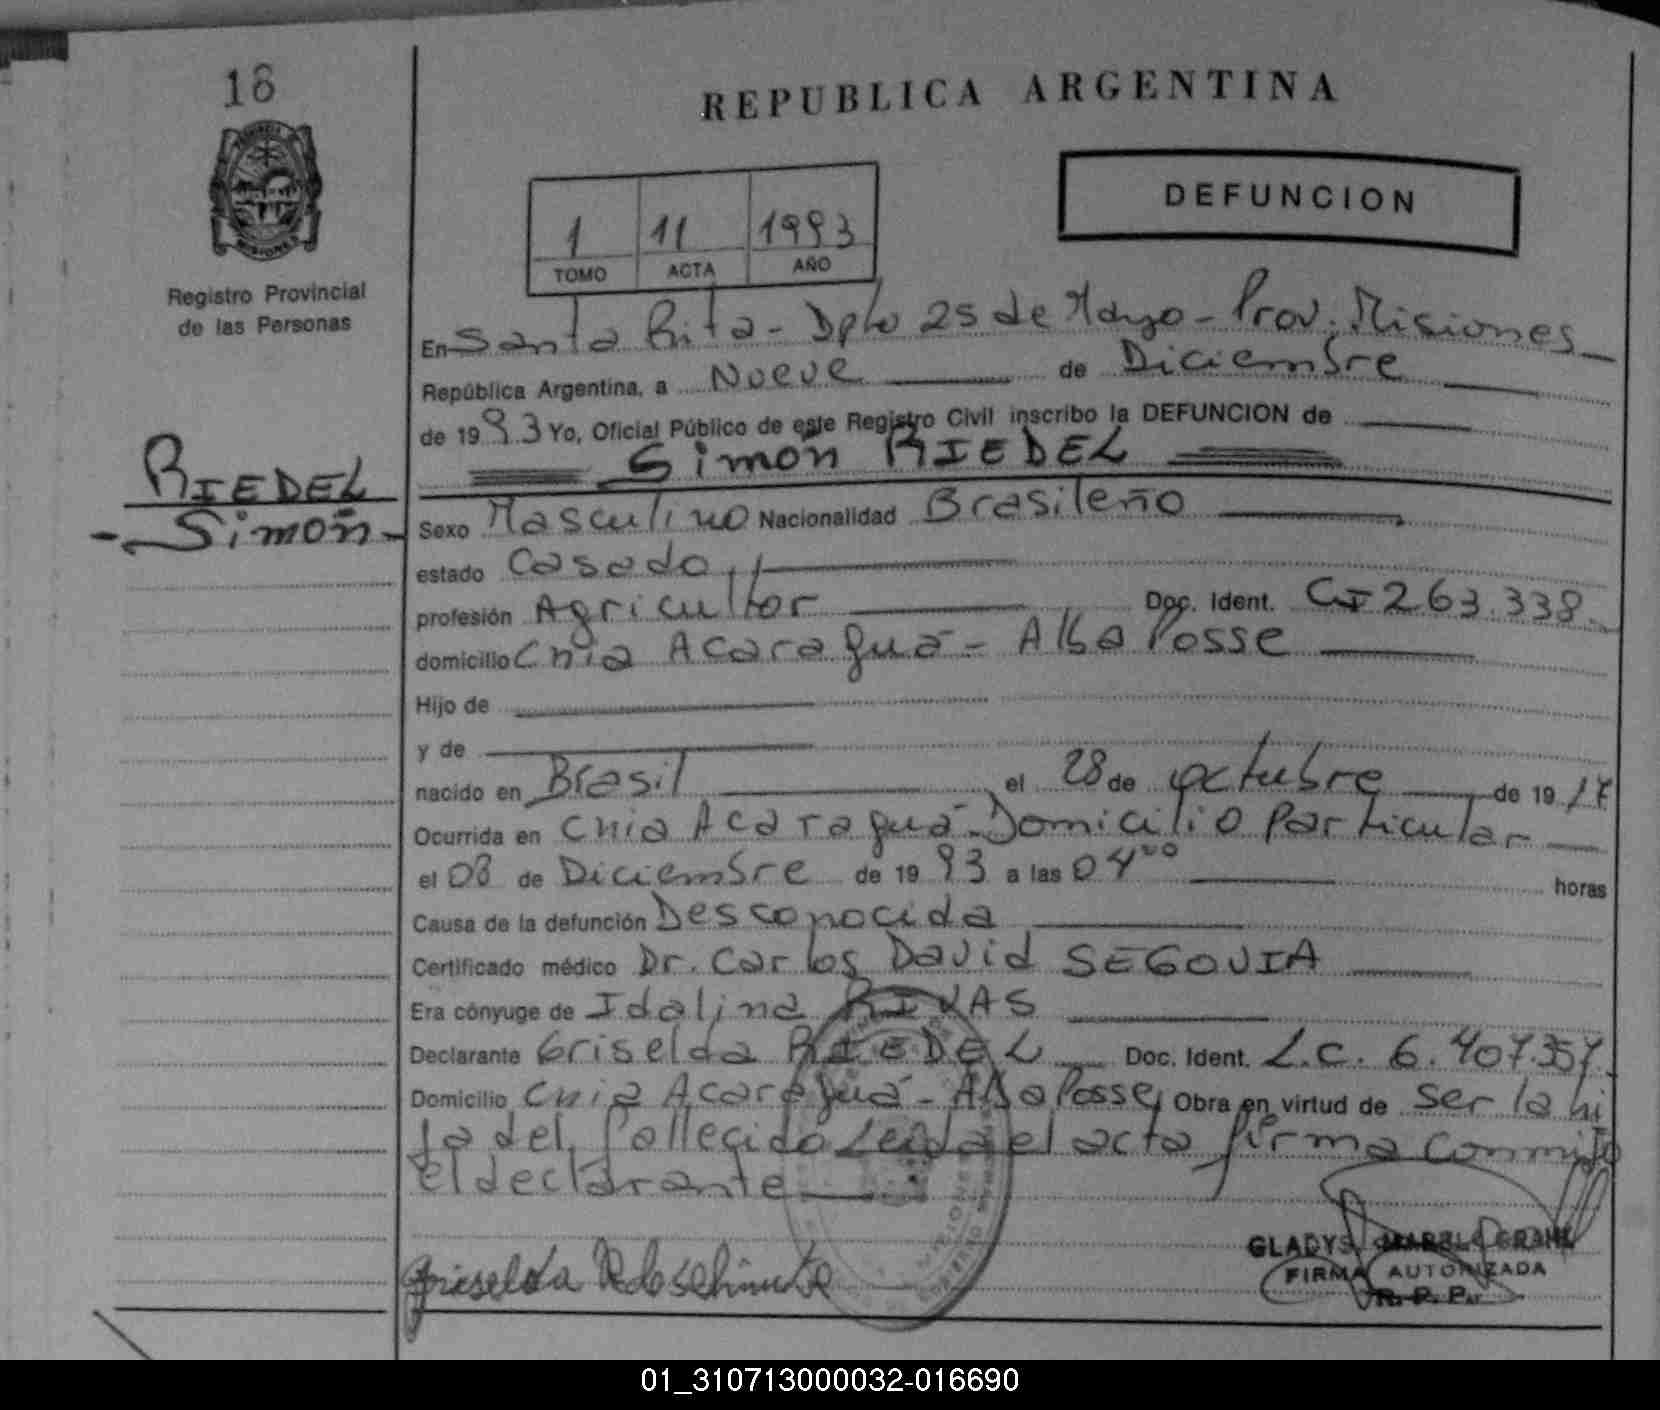 18
REPUBLICA ARGENTINA
DEFUNCION
1 11 1993
TOMO ACTA AÑO
Registro Provincial
de las Personas
En Santa Rita - Dpto 25 de Mayo - Prov. Misiones
República Argentina, a Nueve de Diciembre
de 1993 Yo, Oficial Público de este Registro Civil inscribo la DEFUNCION de
Simón RIEDEL
RIEDEL
- Simón -
Sexo Masculino Nacionalidad Brasileño
estado Casado
profesión Agricultor Doc. Ident. CI 263.338
domicilio Cnia Acaraguá - Alba Posse
Hijo de
y de
nacido en Brasil el 28 de octubre de 1917
Ocurrida en Cnia Acaraguá - Domicilio Particular
el 08 de Diciembre de 1993 a las 04 00 horas
Causa de la defunción Desconocida
Certificado médico Dr. Carlos David SEGOVIA
Era cónyuge de Idalina RIVAS
Declarante Griselda RIEDEL Doc. Ident. L.C. 6.407.357
Domicilio Cnia Acaraguá - Alba Posse Obra en virtud de ser la hi
ja del fallecido Leida el acta firma conmigo
el declarante
Griselda
GLADYS MABEL
FIRMA AUTORIZADA
R. P. P.
01_310713000032-016690